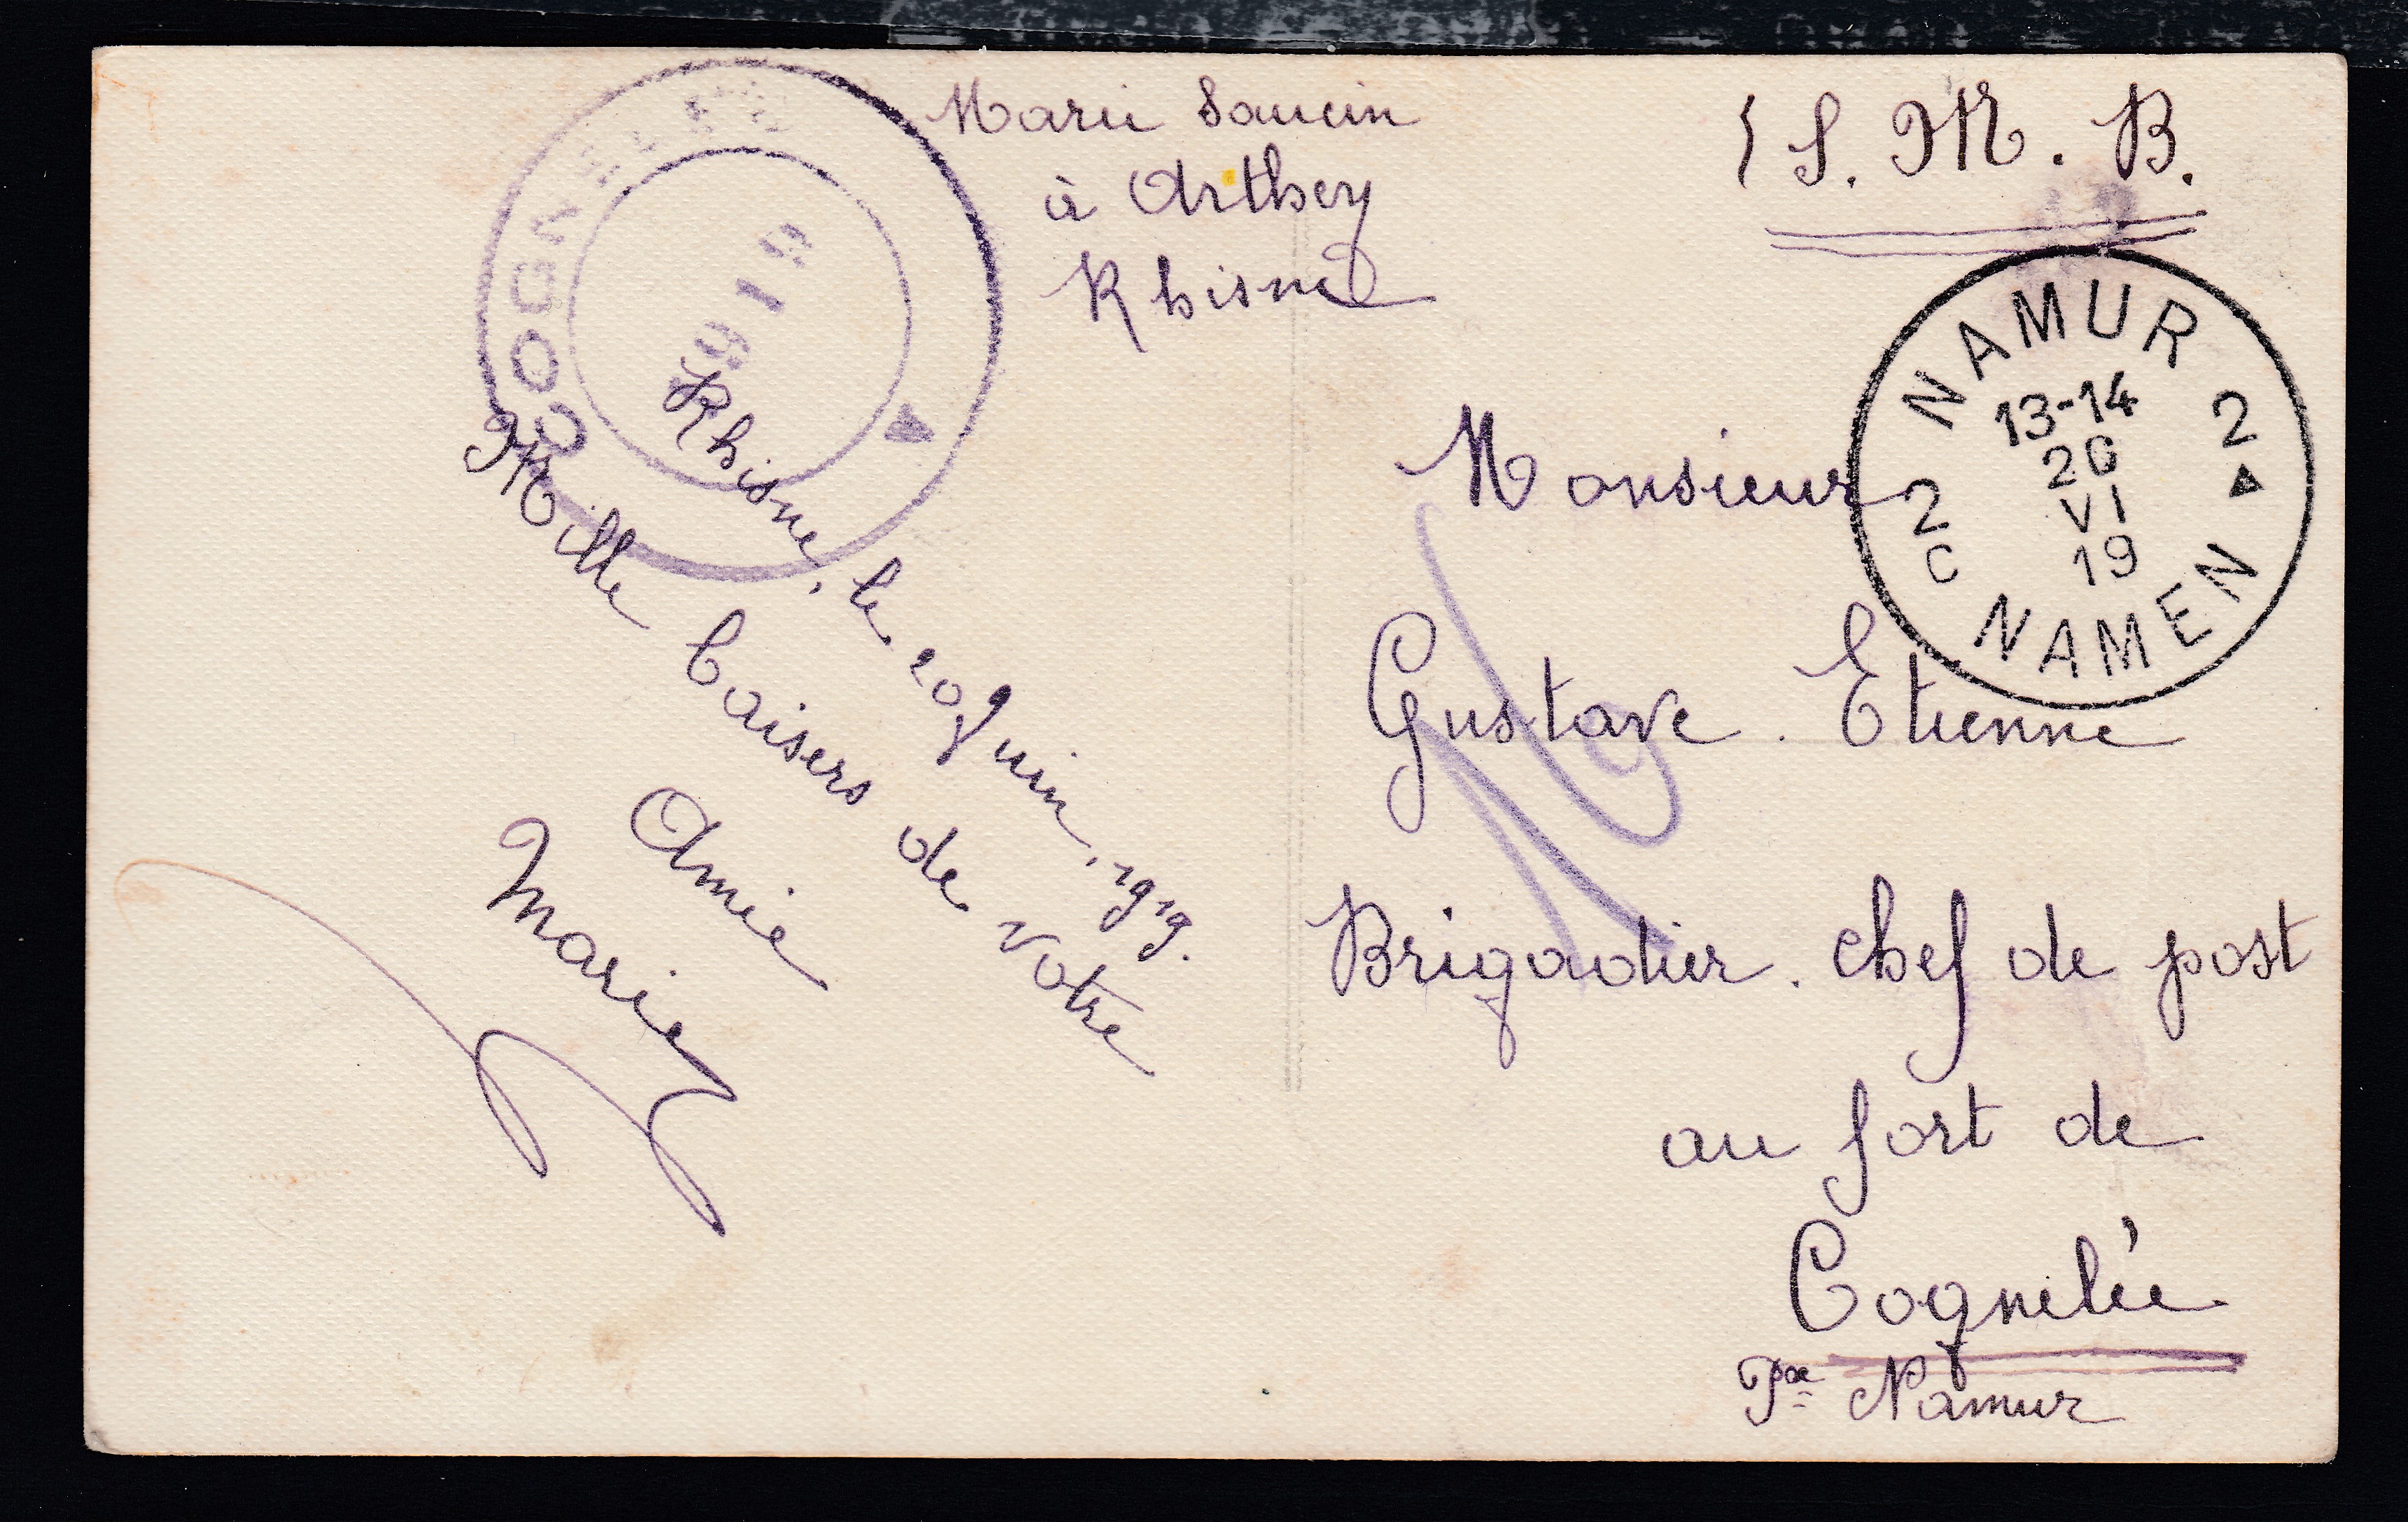 Marie Saucin
à Arthey
Rhisne
S. M. B.
COGNELEE
1919
NAMUR 2
13-14
20
VI
19
2C NAMEN
Rhisne, le 20 Juin, 1919.
Mille baisers de votre
Amie
Marie
Monsieur
Gustave. Etienne
Brigadier. chef de post
au fort de
Cognelée
Pce Namur